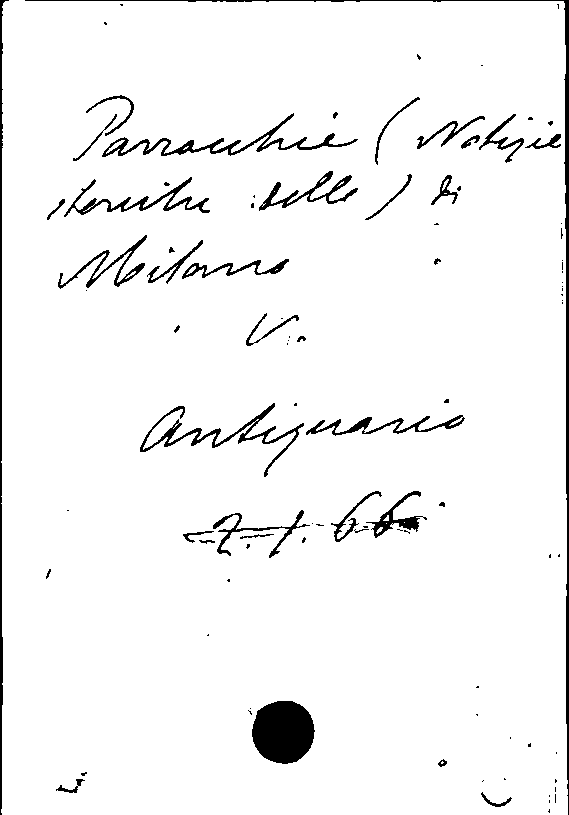 Parrocchie (Notizie
storiche delle) di
Milano
V.
Antiquario
Z. I. 66